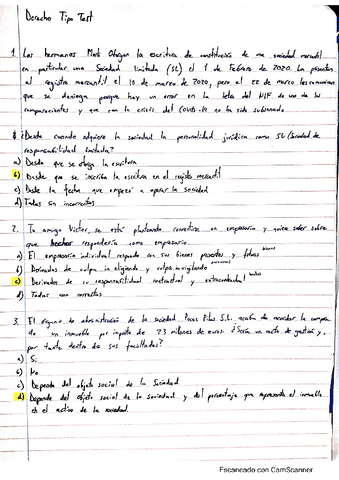 Derecho Tipo Test
1. Los hermanos Martí otorgan la escritura de constitución de una sociedad mercantil
en particular una Sociedad limitada (SL) el 1 de Febrero de 2020. La presentan
al registro mercantil el 10 de marzo de 2020, pero el 22 de marzo les comunican
que se deniega porque hay un error en la letra del NIF de uno de los
comparecientes y que con la crisis del COVID-19 no ha sido subsanado.
¿Desde cuando adquiere la sociedad la personalidad jurídica como SL (Sociedad de
responsabilidad limitada?
a) Desde que se otorga la escritura
b) Desde que se inscriba la escritura en el registro mercantil
c) Desde la fecha que empezó a operar la sociedad
d) Todas son incorrectas
2. Tu amigo Victor, se está planteando convertirse en empresario y quiere saber sobre
que respondería como empresario.
a) El empresario individual responde con sus bienes presentes y futuros
b) Derivadas de culpa in eligiendo y culpa in vigilando
c) Derivadas de su responsabilidad contractual y extracontractual
d) Todas son correctas
3. El órgano de administración de la sociedad Pocas Pilas S.L. acaba de acordar la compra
de un inmueble por importe de 23 milones de euros ¿Sería un acto de gestión y,
por tanto dentro de sus facultades?
a) Si
b) No
c) Depende del objeto social de la Sociedad
d) Depende del objeto social de la sociedad y del porcentaje que represente el inmueble
en el activo de la sociedad.
Escaneado con CamScanner